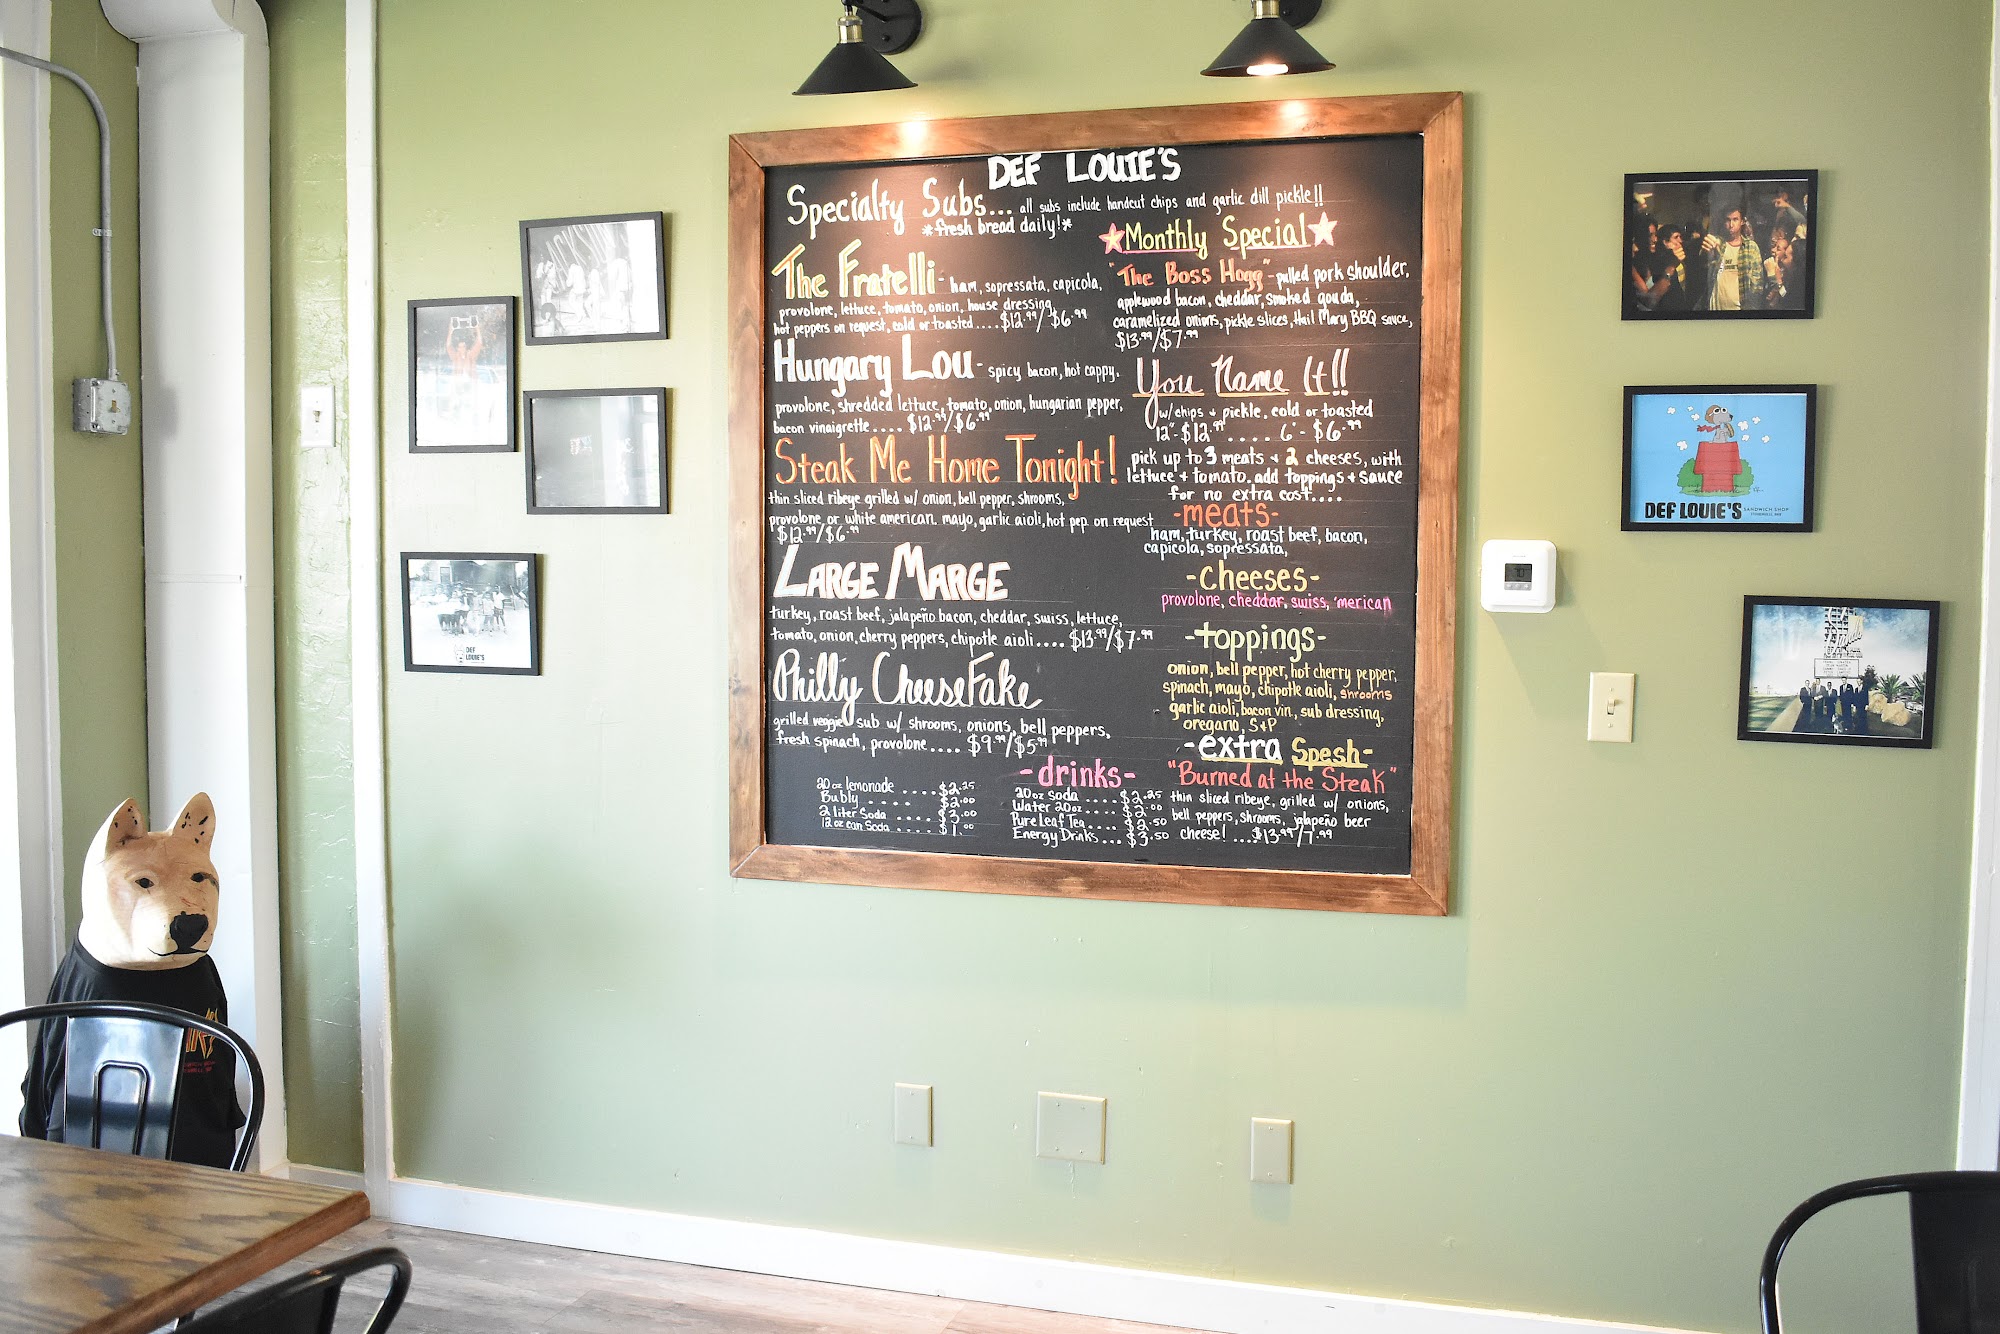 DEF LOUIE'S
Specialty Subs... all subs include handcut chips and garlic dill pickle!!
*fresh bread daily!*
The Fratelli - ham, sopressata, capicola,
provolone, lettuce, tomato, onion, house dressing,
hot peppers on request, cold or toasted .... $12.99/$6.99
Hungary Lou - spicy bacon, hot cappy,
provolone, shredded lettuce, tomato, onion, hungarian pepper,
bacon vinaigrette .... $12.99/$6.99
Steak Me Home Tonight!
thin sliced ribeye grilled w/ onion, bell pepper, shrooms,
provolone or white american. mayo, garlic aioli, hot pep. on request
$12.99/$6.99
Large Marge
turkey, roast beef, jalapeño bacon, cheddar, swiss, lettuce,
tomato, onion, cherry peppers, chipotle aioli .... $13.99/$7.99
Philly CheeseFake
grilled veggie sub w/ shrooms, onions, bell peppers,
fresh spinach, provolone .... $9.99/$5.99
Monthly Special
"The Boss Hogg" - pulled pork shoulder,
applewood bacon, cheddar, smoked gouda,
caramelized onions, pickle slices, Hail Mary BBQ sauce,
$13.99/$7.99
You Name It!!
w/ chips + pickle. cold or toasted
12" - $12.99 .... 6" - $6.99
pick up to 3 meats + 2 cheeses, with
lettuce + tomato. add toppings + sauce
for no extra cost....
-meats-
ham, turkey, roast beef, bacon,
capicola, sopressata,
-cheeses-
provolone, cheddar, swiss, 'merican
-toppings-
onion, bell pepper, hot cherry pepper,
spinach, mayo, chipotle aioli, shrooms
garlic aioli, bacon vin., sub dressing,
oregano, S+P
-extra Spesh-
"Burned at the Steak"
thin sliced ribeye, grilled w/ onions,
bell peppers, shrooms, jalapeño beer
cheese! .... $13.99/7.99
-drinks-
20 oz lemonade ..... $2.25
Bubly ..... $2.00
2 liter Soda .... $3.00
12 oz can Soda .... $1.00
20 oz Soda .... $2.25
Water 20oz .... $2.00
Pure Leaf Tea .... $2.50
Energy Drinks ... $3.50
DEF LOUIE'S SANDWICH SHOP
DEF
LOUIE'S